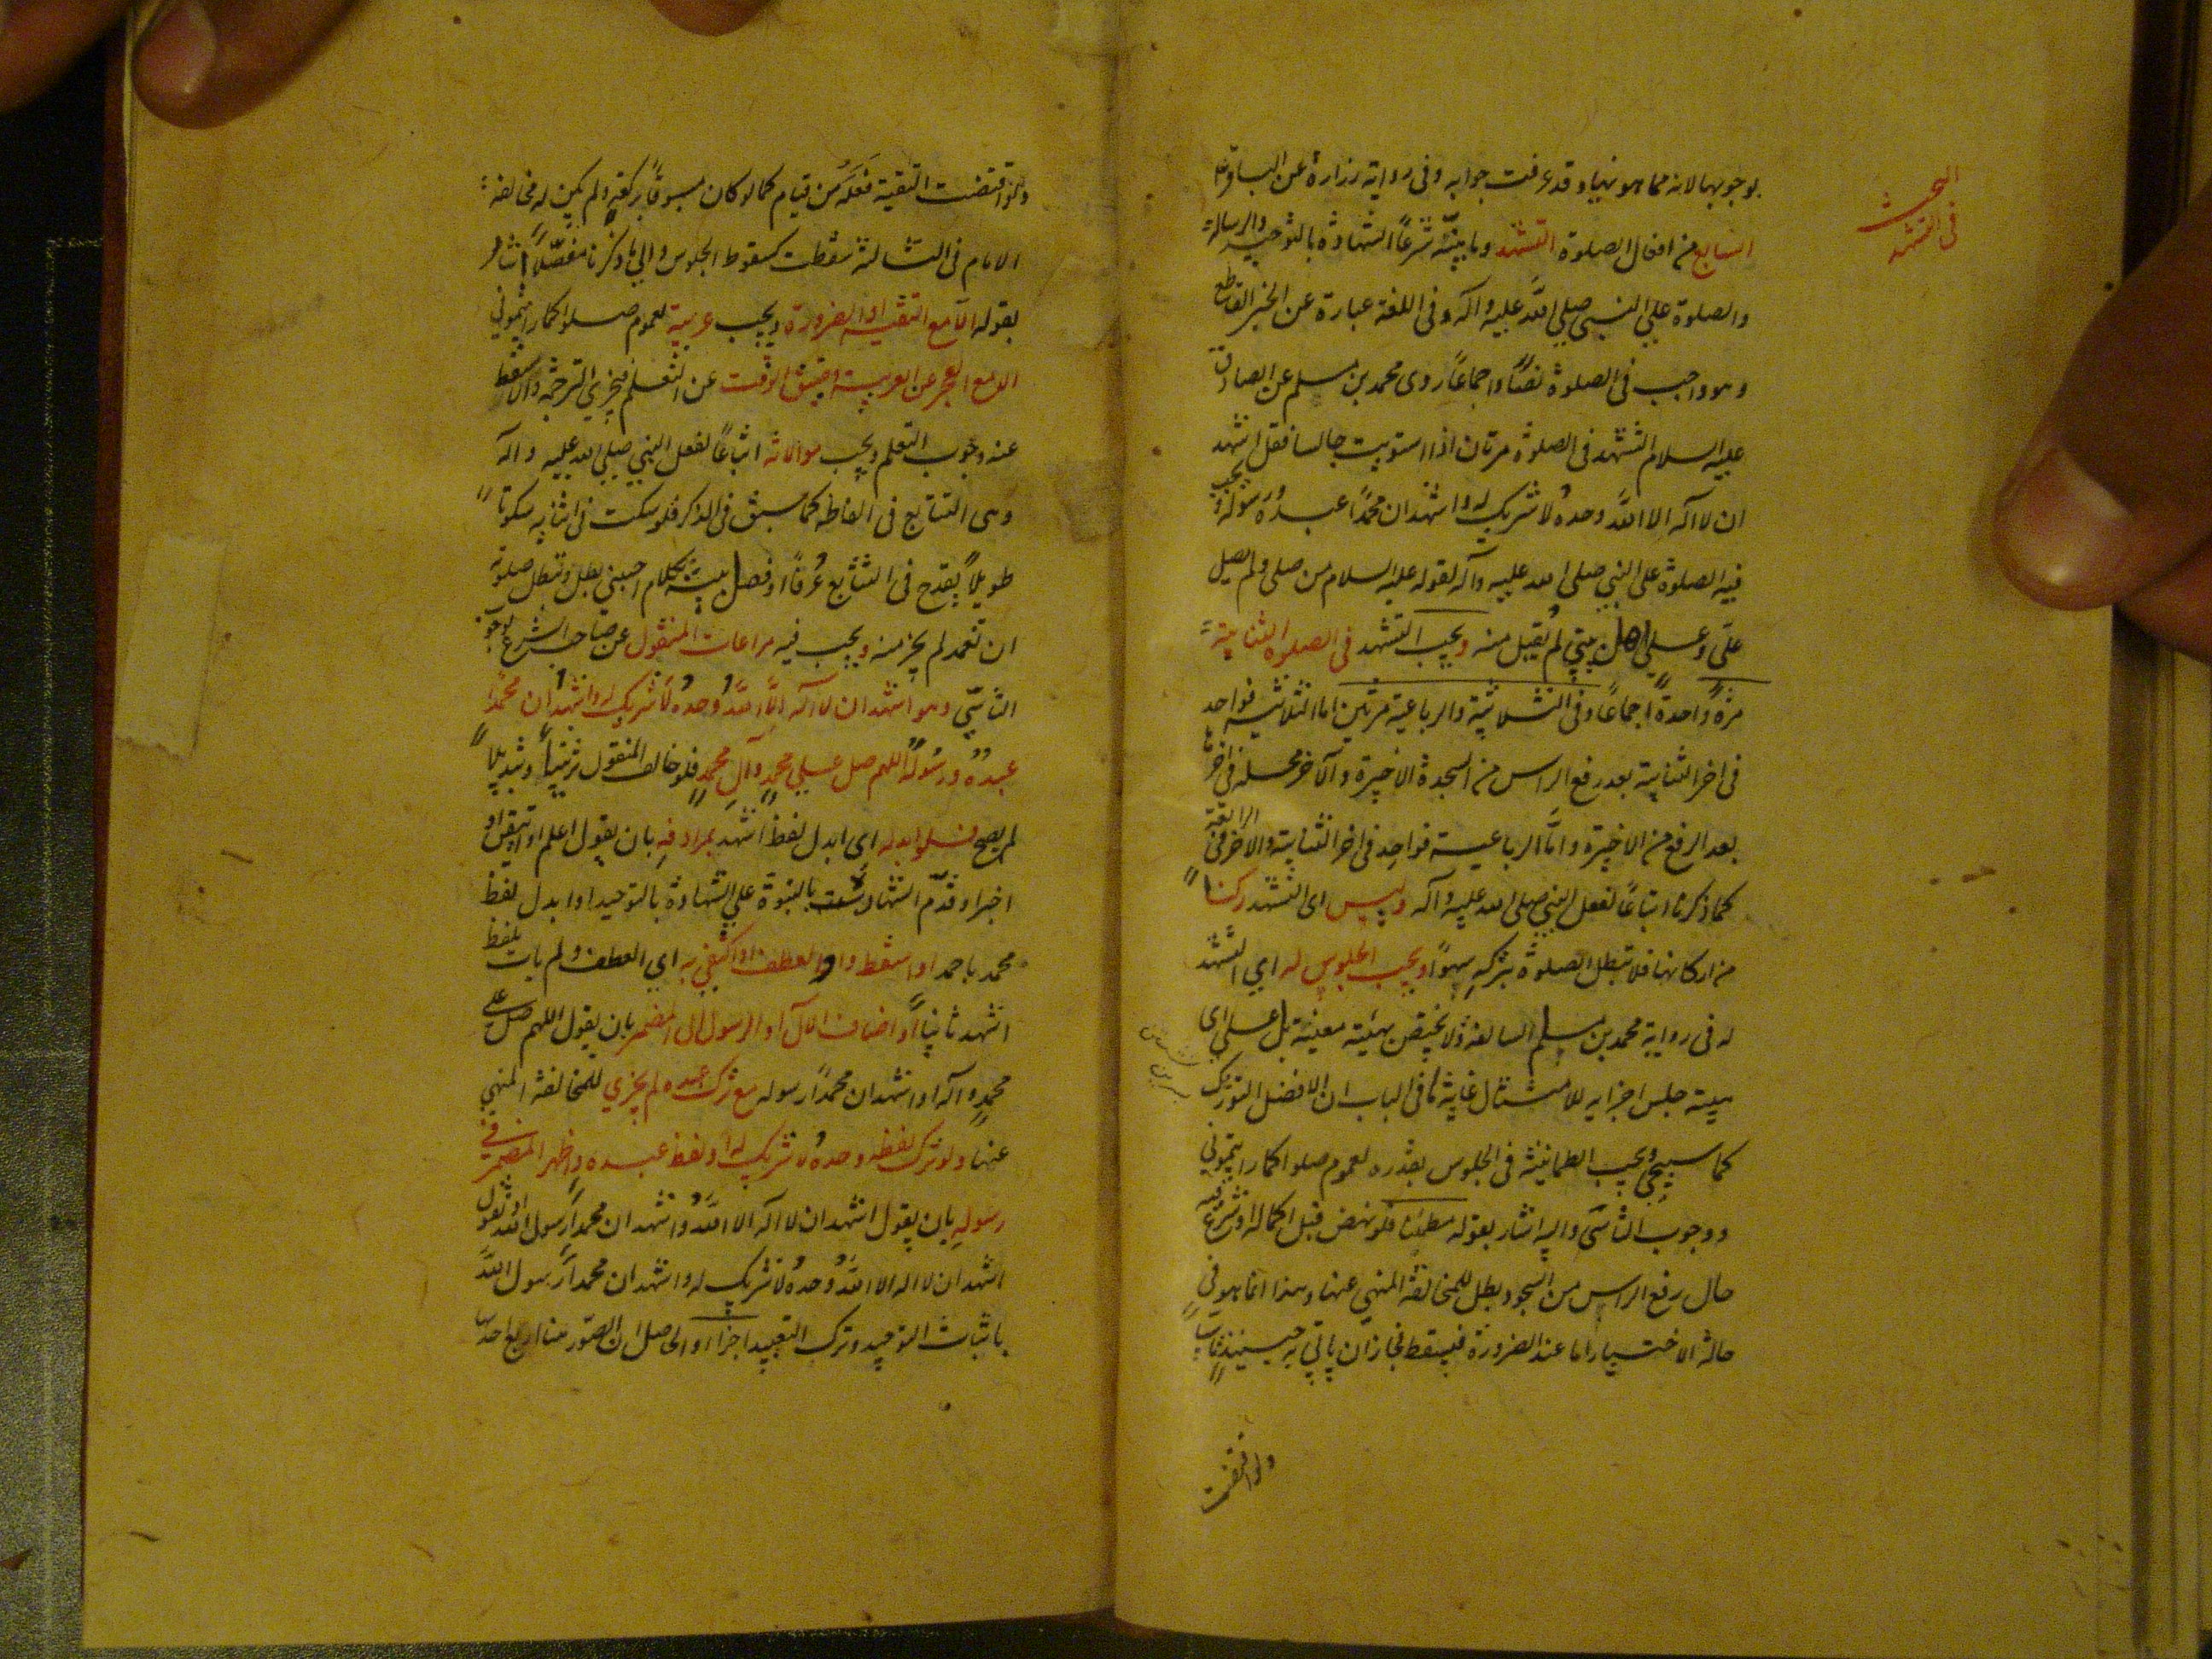 البحث
في التشهد
بوجوبها لانه مما هو فيها وقد عرفت جوابه وفى رواية زرارة عن الباقر
السابع من افعال الصلوة التشهد شرعاً الشهادة بالتوحيد والرسالة
والصلوة على النبى صلى الله عليه وآله وفى اللغة عبارة عن الخبر القاطع
وهو واجب فى الصلوة نصًا واجماعاً روى محمد بن مسلم عن الصادق
عليه السلام التشهد فى الصلوة مرتان اذا استويت جالسا فقل اشهد
ان لا اله الا الله وحده لا شريك له واشهد ان محمدًا عبده ورسوله ويجب
فيه الصلوة على النبي صلى الله عليه وآله لقوله عليه السلام من صلى ولم يصل
علىّ وعلى اهل بيتي لم تقبل منه ويجب التشهد فى الصلوة الثنائية
مرةً واحدةً اجماعاً وفى الثلاثية والرباعية مرتين اما الثلاثية فواحد
فى اخر الثانية بعد رفع الراس من السجدة الاخيرة والآخر محله فى اخرها
بعد الرفع من الاخيرة وامّا الرباعية فواحد فى اخر الثانية والآخر فى الرابعة
كما ذكرنا اتباعًا لفعل النبي صلى الله عليه وآله وليس اى التشهد ركنا
من اركانها فلا تبطل الصلوة بتركه سهوًا ويجب الجلوس له اي التشهد
له فى رواية محمد بن مسلم السالفة ولا يختص بهيئة معينة بل على اى
هيئة جلس اجزاءه للامتثال غاية ما فى الباب ان الافضل التورك
كما سيجئ ويجب الطمانينة فى الجلوس بقدره لعموم صلوا كما رايتموني
ووجوب التأسى واليه اشار بقوله مطمئنا فلو نهض قبل اكماله او شرع فيه
حال رفع الراس من السجود بطل للمخالفة المنهي عنها وهذا انما هو فى
حالة الاختيار اما عند الضرورة فيسقط فجاز ان ياتي به حينئذ
ولو اقتضت
ولو اقتضت التقية فعله من قيام كما لو كان مسبوقاً بركعة ولم يكن له مخالفة
الامام فى الثالثة سقطت كسقوط الجلوس والى ما ذكرنا مفصّلاً اشار
بقوله الّا مع التقية او الضرورة ويجب عربية لعموم صلوا كما رايتموني
الا مع العجز عن العربية وضيق الوقت عن التعلم فيجزي الترجمة والا سقط
عنه وجوب التعلم ويجب موالاته اتباعًا لفعل النبي صلى الله عليه وآله
وهى التتابع فى الفاظه كما سبق فى الذكر فلو سكت فى اثنائه سكوتا
طويلاً يقدح فى التتابع عُرفًا او فصل بينه بكلام اجنبي بطل وتبطل صلوته
ان تعمد لم يجز منه ويجب فيه مراعات المنقول عن صاحب الشرع لوجوب
التأسّي وهو اشهد ان لا اله الّا الله وحده لا شريك له واشهد ان محمدًا
عبده ورسوله اللهم صل على محمدٍ وآل محمدٍ فلو خالف المنقول ترتيباً وتبديلاً
لم يصح فلو ابدله اى ابدل لفظ اشهد بمرادفه بان يقول اعلم او اتيقن او
اخبر او قدّم الشهادت بالنبوة على الشهادة بالتوحيد او ابدل لفظ
محمد باحمد او اسقط واو العطف او اكتفى به اي العطف ولم يات بلفظ
اشهد ثانياً او اضاف الآل او الرسول الى المضمر بان يقول اللهم صل على
محمدٍ وآله او اشهد ان محمدًا رسوله مع ترك عبده لم يجزي للمخالفة المنهي
عنها ولو ترك لفظ وحده لا شريك له او لفظ عبده واظهر المضمر في
رسوله بان يقول اشهد ان لا اله الا الله واشهد ان محمداً رسول الله او يقول
اشهد ان لا اله الا الله وحده لا شريك له واشهد ان محمداً رسول الله
باثبات التوحيد وترك التعبيد اجزا والحاصل ان الصور هنا اربع احديها